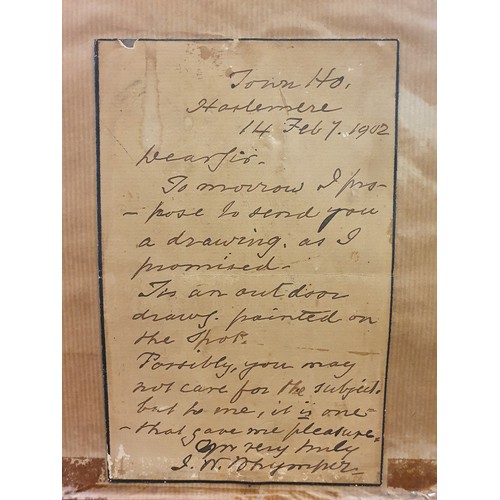 Town Ho.
Haslemere
14 Feby. 1902
Dear Sir.
To morrow I pro-
-pose to send you
a drawing. as I
promised-
Tis an outdoor
drawg. painted on
the spot.
Possibly, you may
not care for the subject.
but to me, it is one-
-that gave me pleasure.
Yrs very truly
J. W. Whymper.